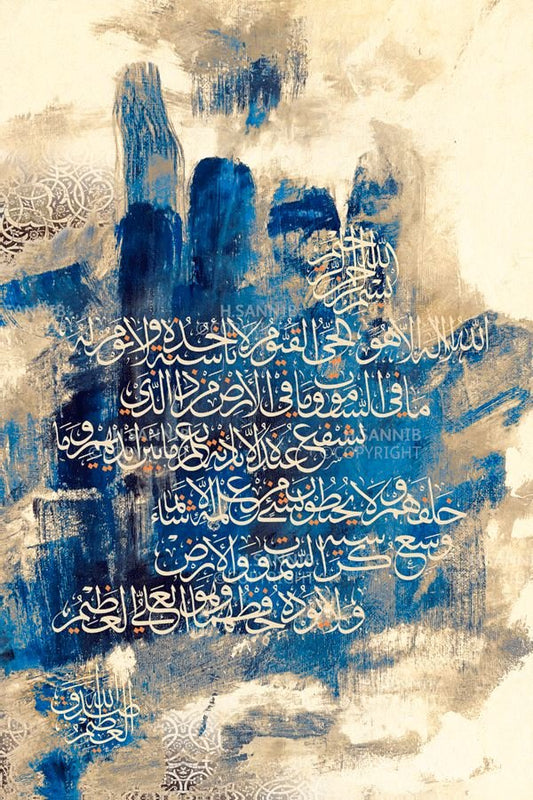 بسم الله الرحمن الرحيم
الله لا إله إلا هو الحي القيوم لا تأخذه سنة ولا نوم له
ما في السموات وما في الأرض من ذا الذي
يشفع عنده إلا بإذنه يعلم ما بين أيديهم وما
خلفهم ولا يحيطون بشيء من علمه إلا بما شاء
وسع كرسيه السموات والأرض
ولا يؤده حفظهما وهو العلي العظيم
صدق الله العظيم
H.SANNIB
COPYRIGHT